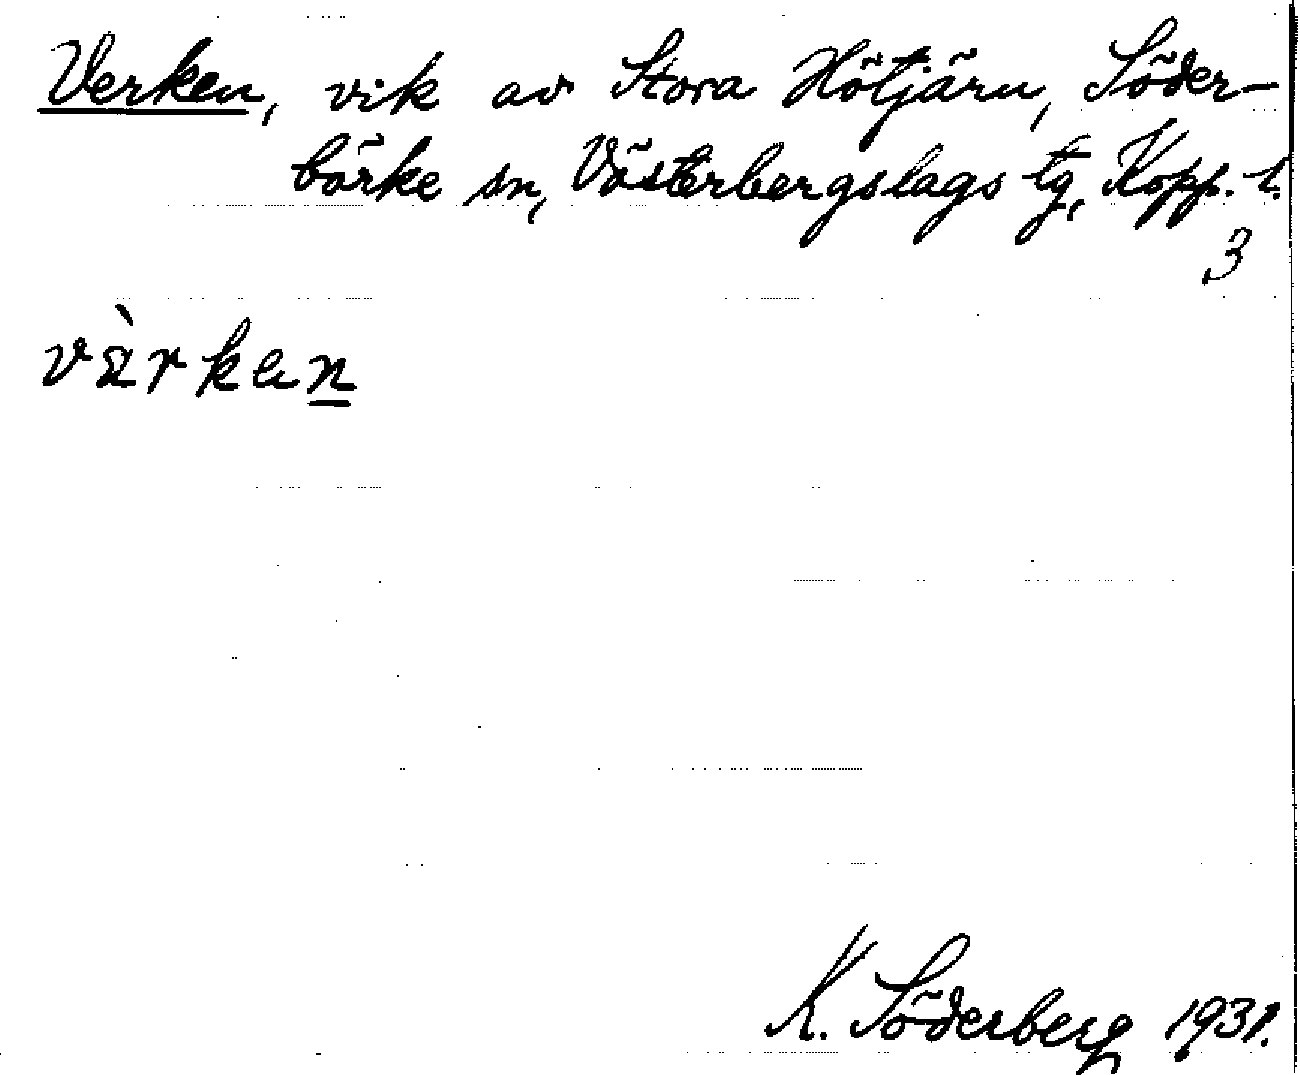 Verken, vik av Stora Hötjärn, Söder-
bärke sn, Västerbergslags tg, Kopp. l.
3
vàrken
K. Söderberg 1931.